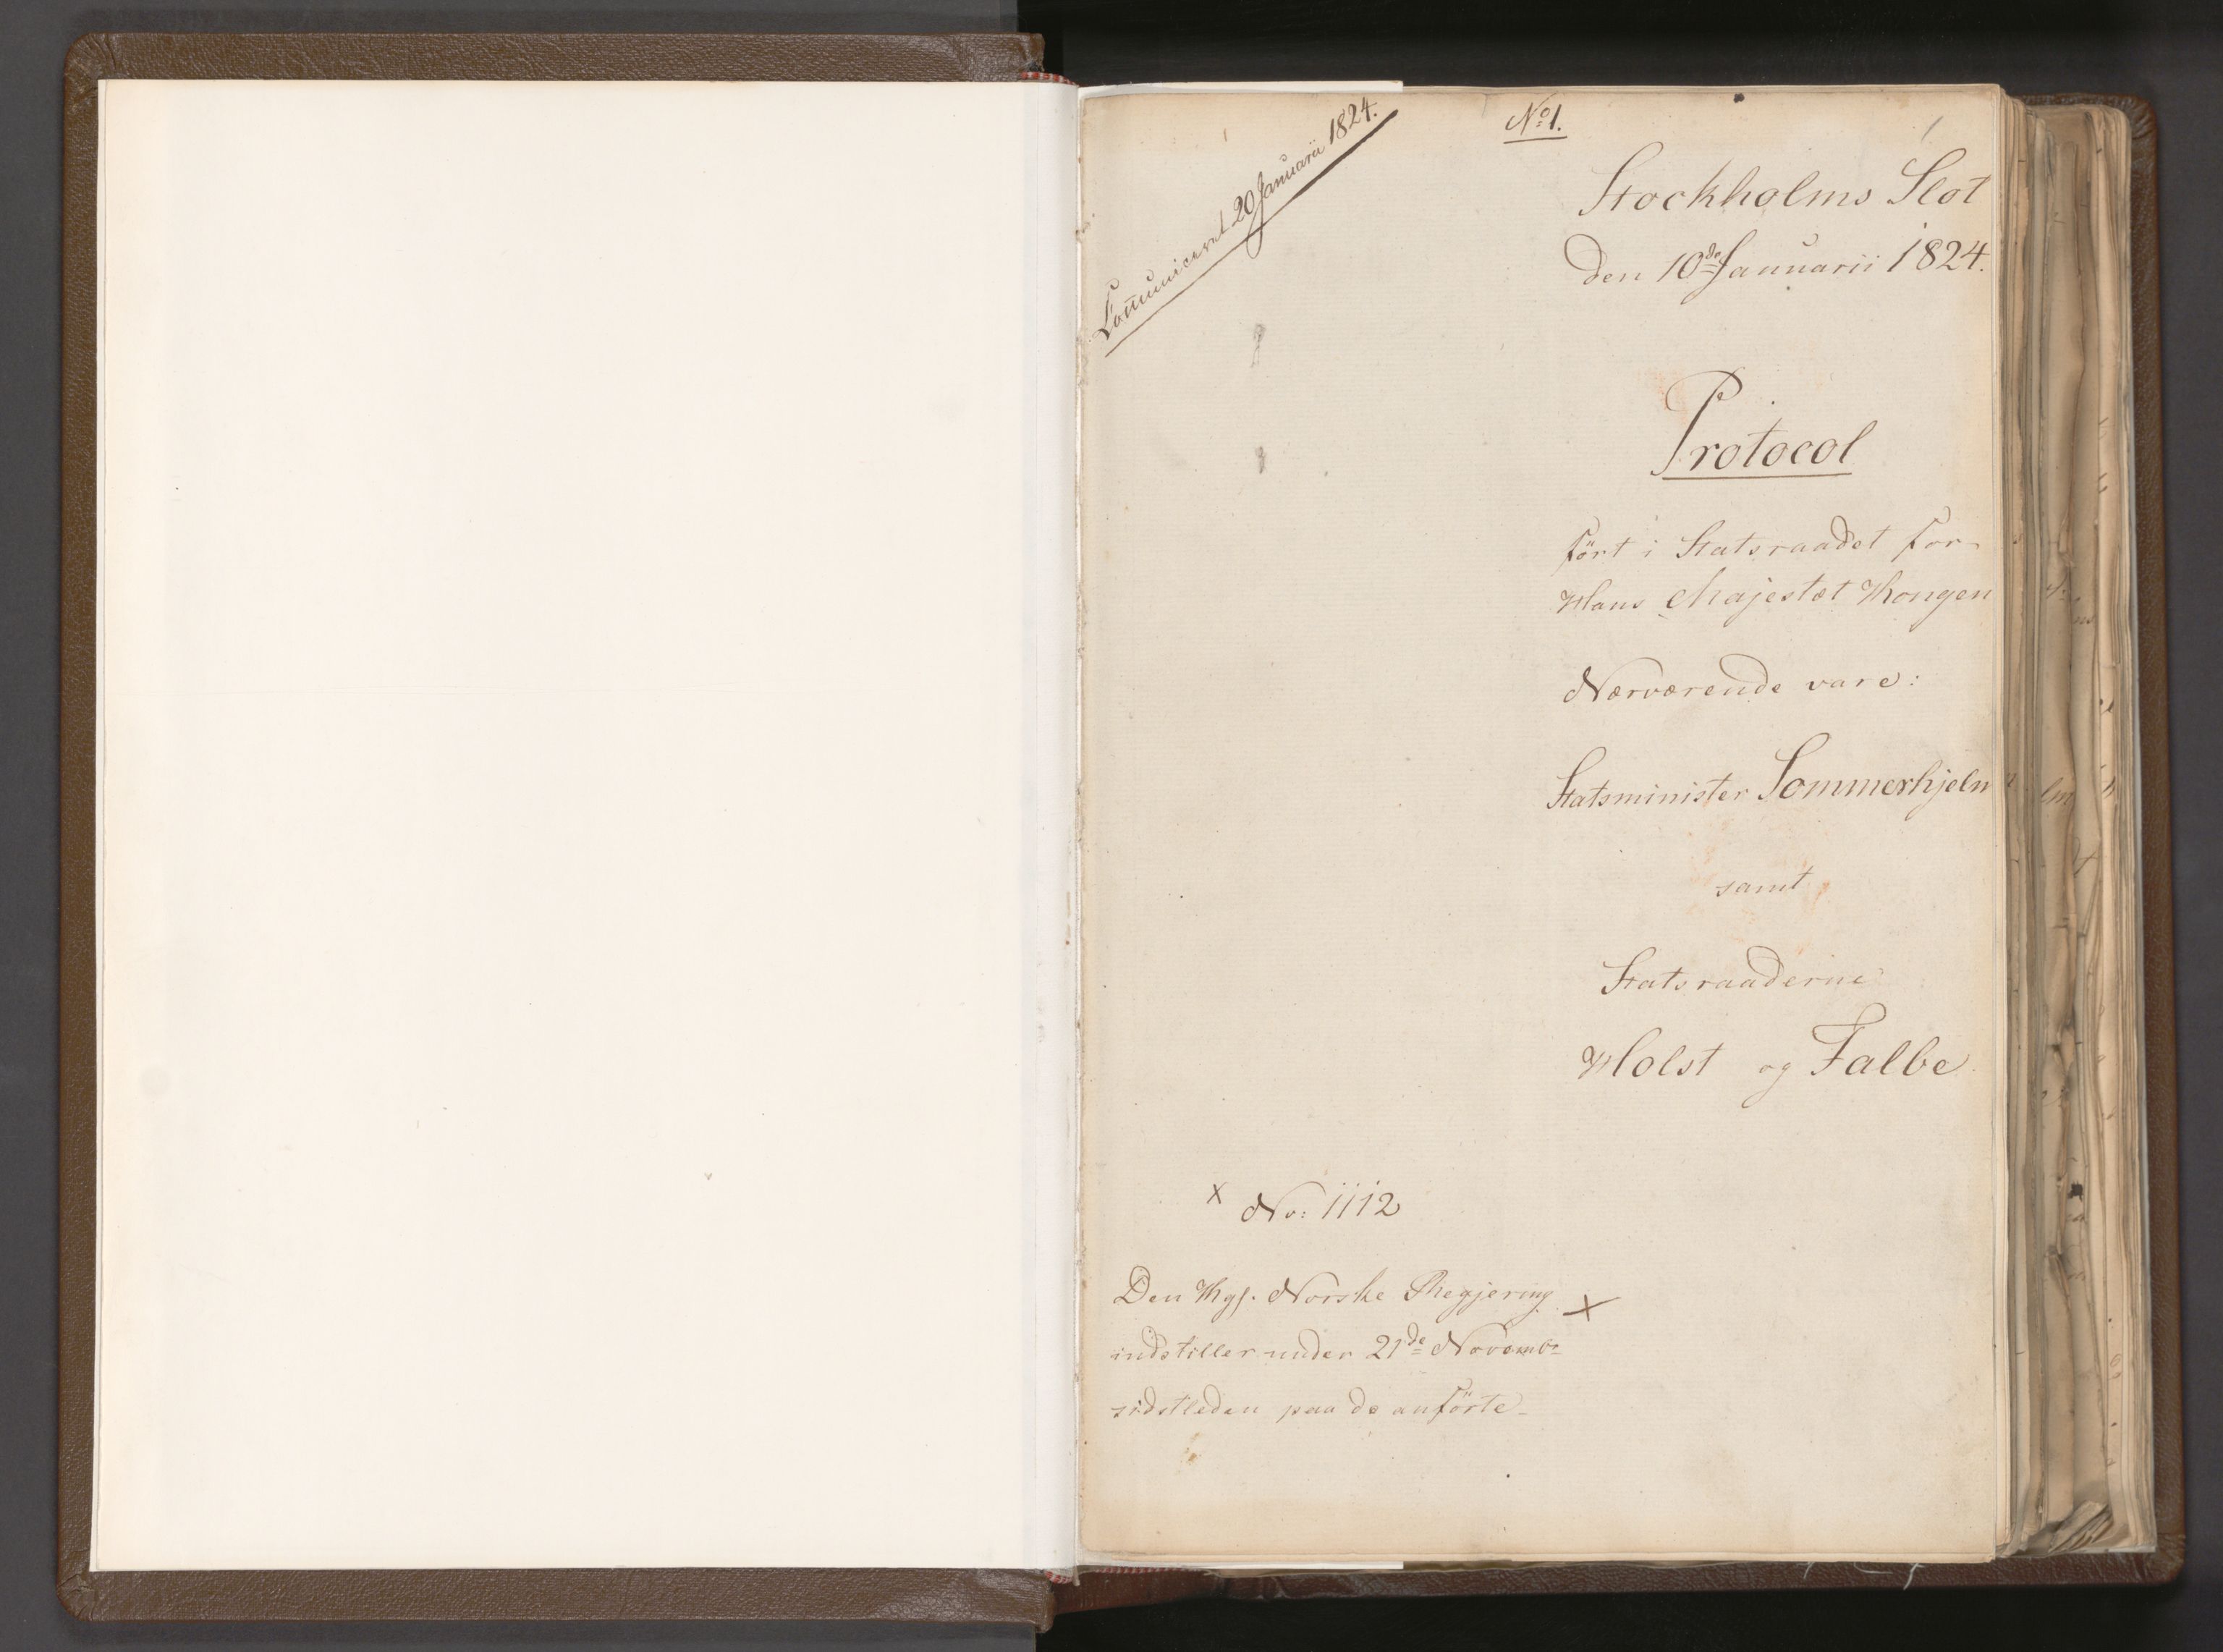 Communiceret 20 Januarii 1824.
No 1.
1
Stockholms Slot
den 10de Januarii 1824.
Protocol
ført i Statsraadet for
Hans Majestæt Kongen
Nærværende vare:
Statsminister Sommerhjelm
samt
Statsraaderne
Holst og Falbe
x No: 1112
Den Kgl. Norske Regjering x
indstiller under 21de Novembr
sidstleden paa de anførte